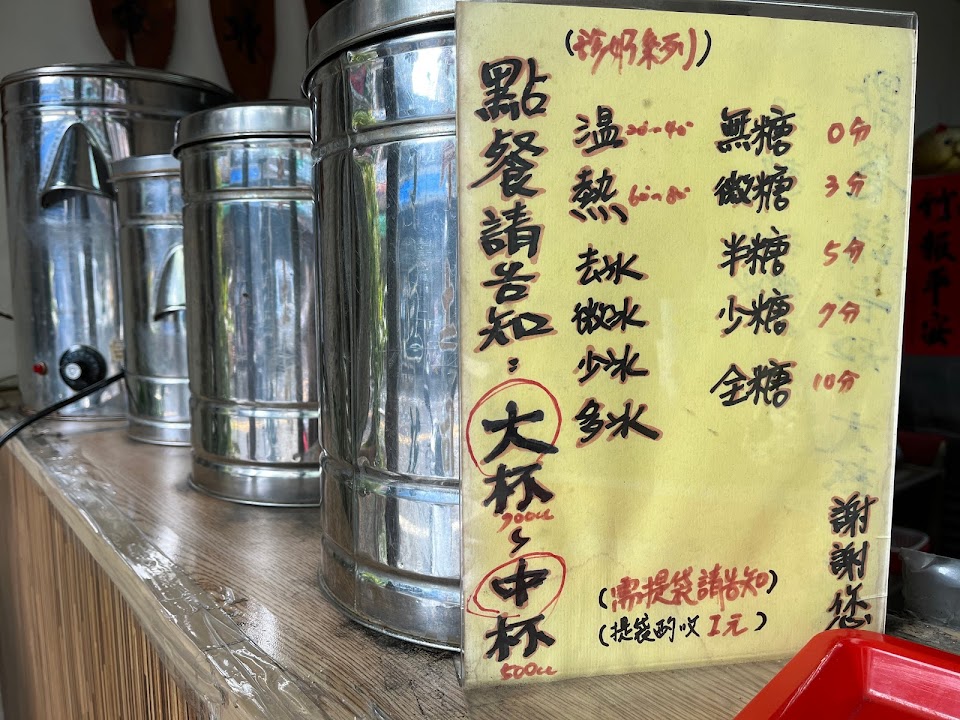 (珍奶系列)
點餐請告知：大杯～中杯
900cc
500cc
溫 20~40
熱 60~80
去冰
微冰
少冰
多冰
無糖 0分
微糖 3分
半糖 5分
少糖 7分
全糖 10分
(需提袋請告知)
(提袋酌收 1元)
謝謝您
竹報平安